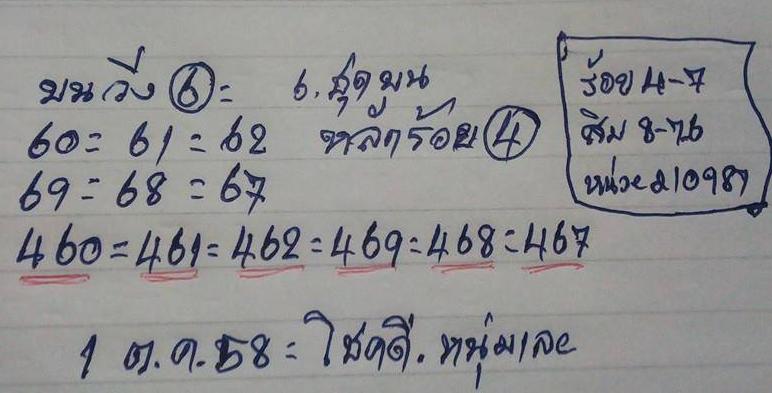 บนวิ่ง 6 = 6. ชุดบน
60 = 61 = 62 หลักร้อย 4
69 = 68 = 67
460 = 461 = 462 = 469 = 468 = 467
ร้อย 4-7
สิบ 8-76
หน่วย 210987
1 ต.ค. 58 = โชคดี. หนุ่มเลย